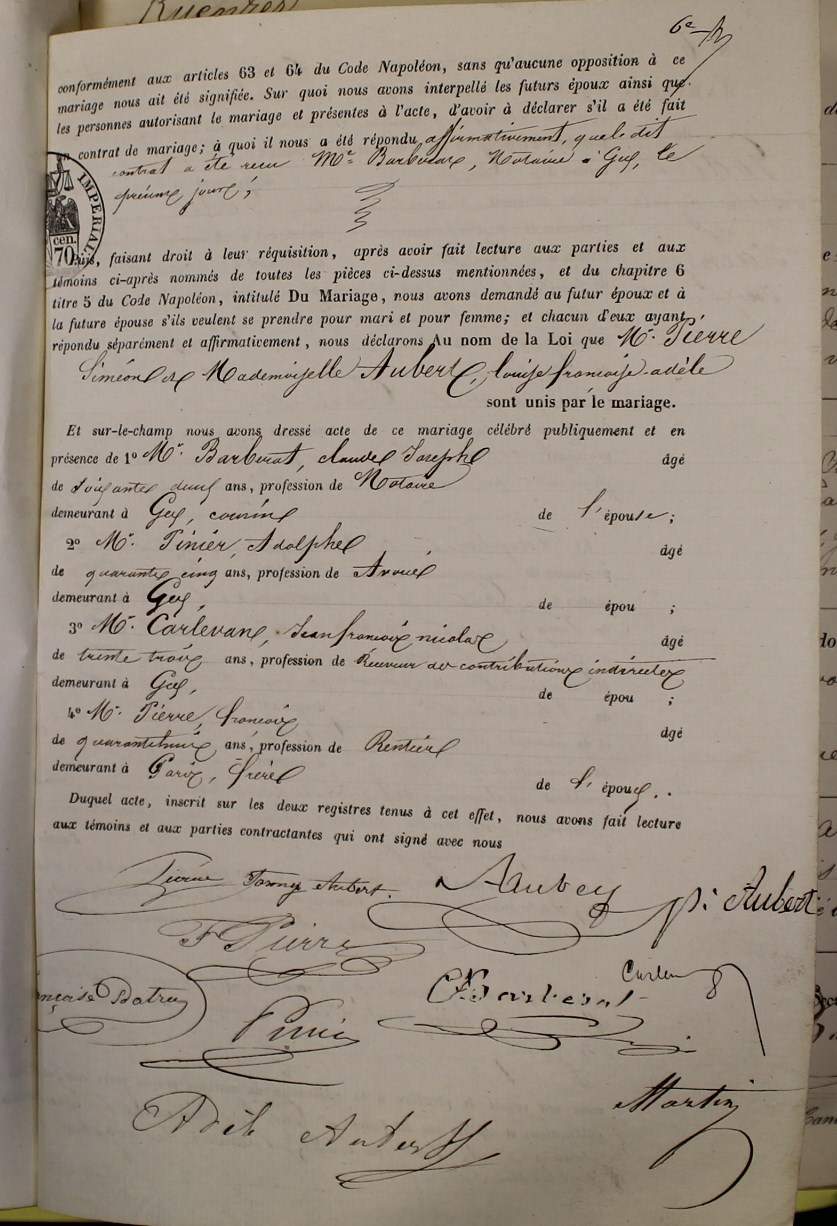 6e
conformément aux articles 63 et 64 du Code Napoléon, sans qu'aucune opposition à ce
mariage nous ait été signifiée. Sur quoi nous avons interpellé les futurs époux ainsi que
les personnes autorisant le mariage et présentes à l'acte, d'avoir à déclarer s'il a été fait
contrat de mariage; à quoi il nous a été répondu affirmativement, que le dit
contrat a été reçu Me Barberat, Notaire à Gex, le
jour;
IMPERIAL
70 cen.
Puis, faisant droit à leur réquisition, après avoir fait lecture aux parties et aux
témoins ci-après nommés de toutes les pièces ci-dessus mentionnées, et du chapitre 6
titre 5 du Code Napoléon, intitulé Du Mariage, nous avons demandé au futur époux et à
la future épouse s'ils veulent se prendre pour mari et pour femme; et chacun d'eux ayant
répondu séparément et affirmativement, nous déclarons Au nom de la Loi que Mr. Pierre
Siméon et Mademoiselle Aubert, louise françoise adèle
sont unis par le mariage.
Et sur-le-champ nous avons dressé acte de ce mariage célébré publiquement et en
présence de 1o Mr. Barberat, claude Joseph âgé
de soixante deux ans, profession de Notaire
demeurant à Gex, cousin de l'épouse;
2o Mr. Pinier, Adolphe âgé
de quarante cinq ans, profession de Avoué
demeurant à Gex, de épou ;
3o Mr. Carlevan, Jean françois nicolas âgé
de trente trois ans, profession de Receveur des contributions indirectes
demeurant à Gex, de épou ;
4o Mr. Pierre, françois âgé
de quarante huit ans, profession de Rentier
demeurant à Paris, frère de l'époux.
Duquel acte, inscrit sur les deux registres tenus à cet effet, nous avons fait lecture
aux témoins et aux parties contractantes qui ont signé avec nous
Pierre Fanny Aubert. Aubert
F Pierre
Barberat
Adèle Aubert Martin